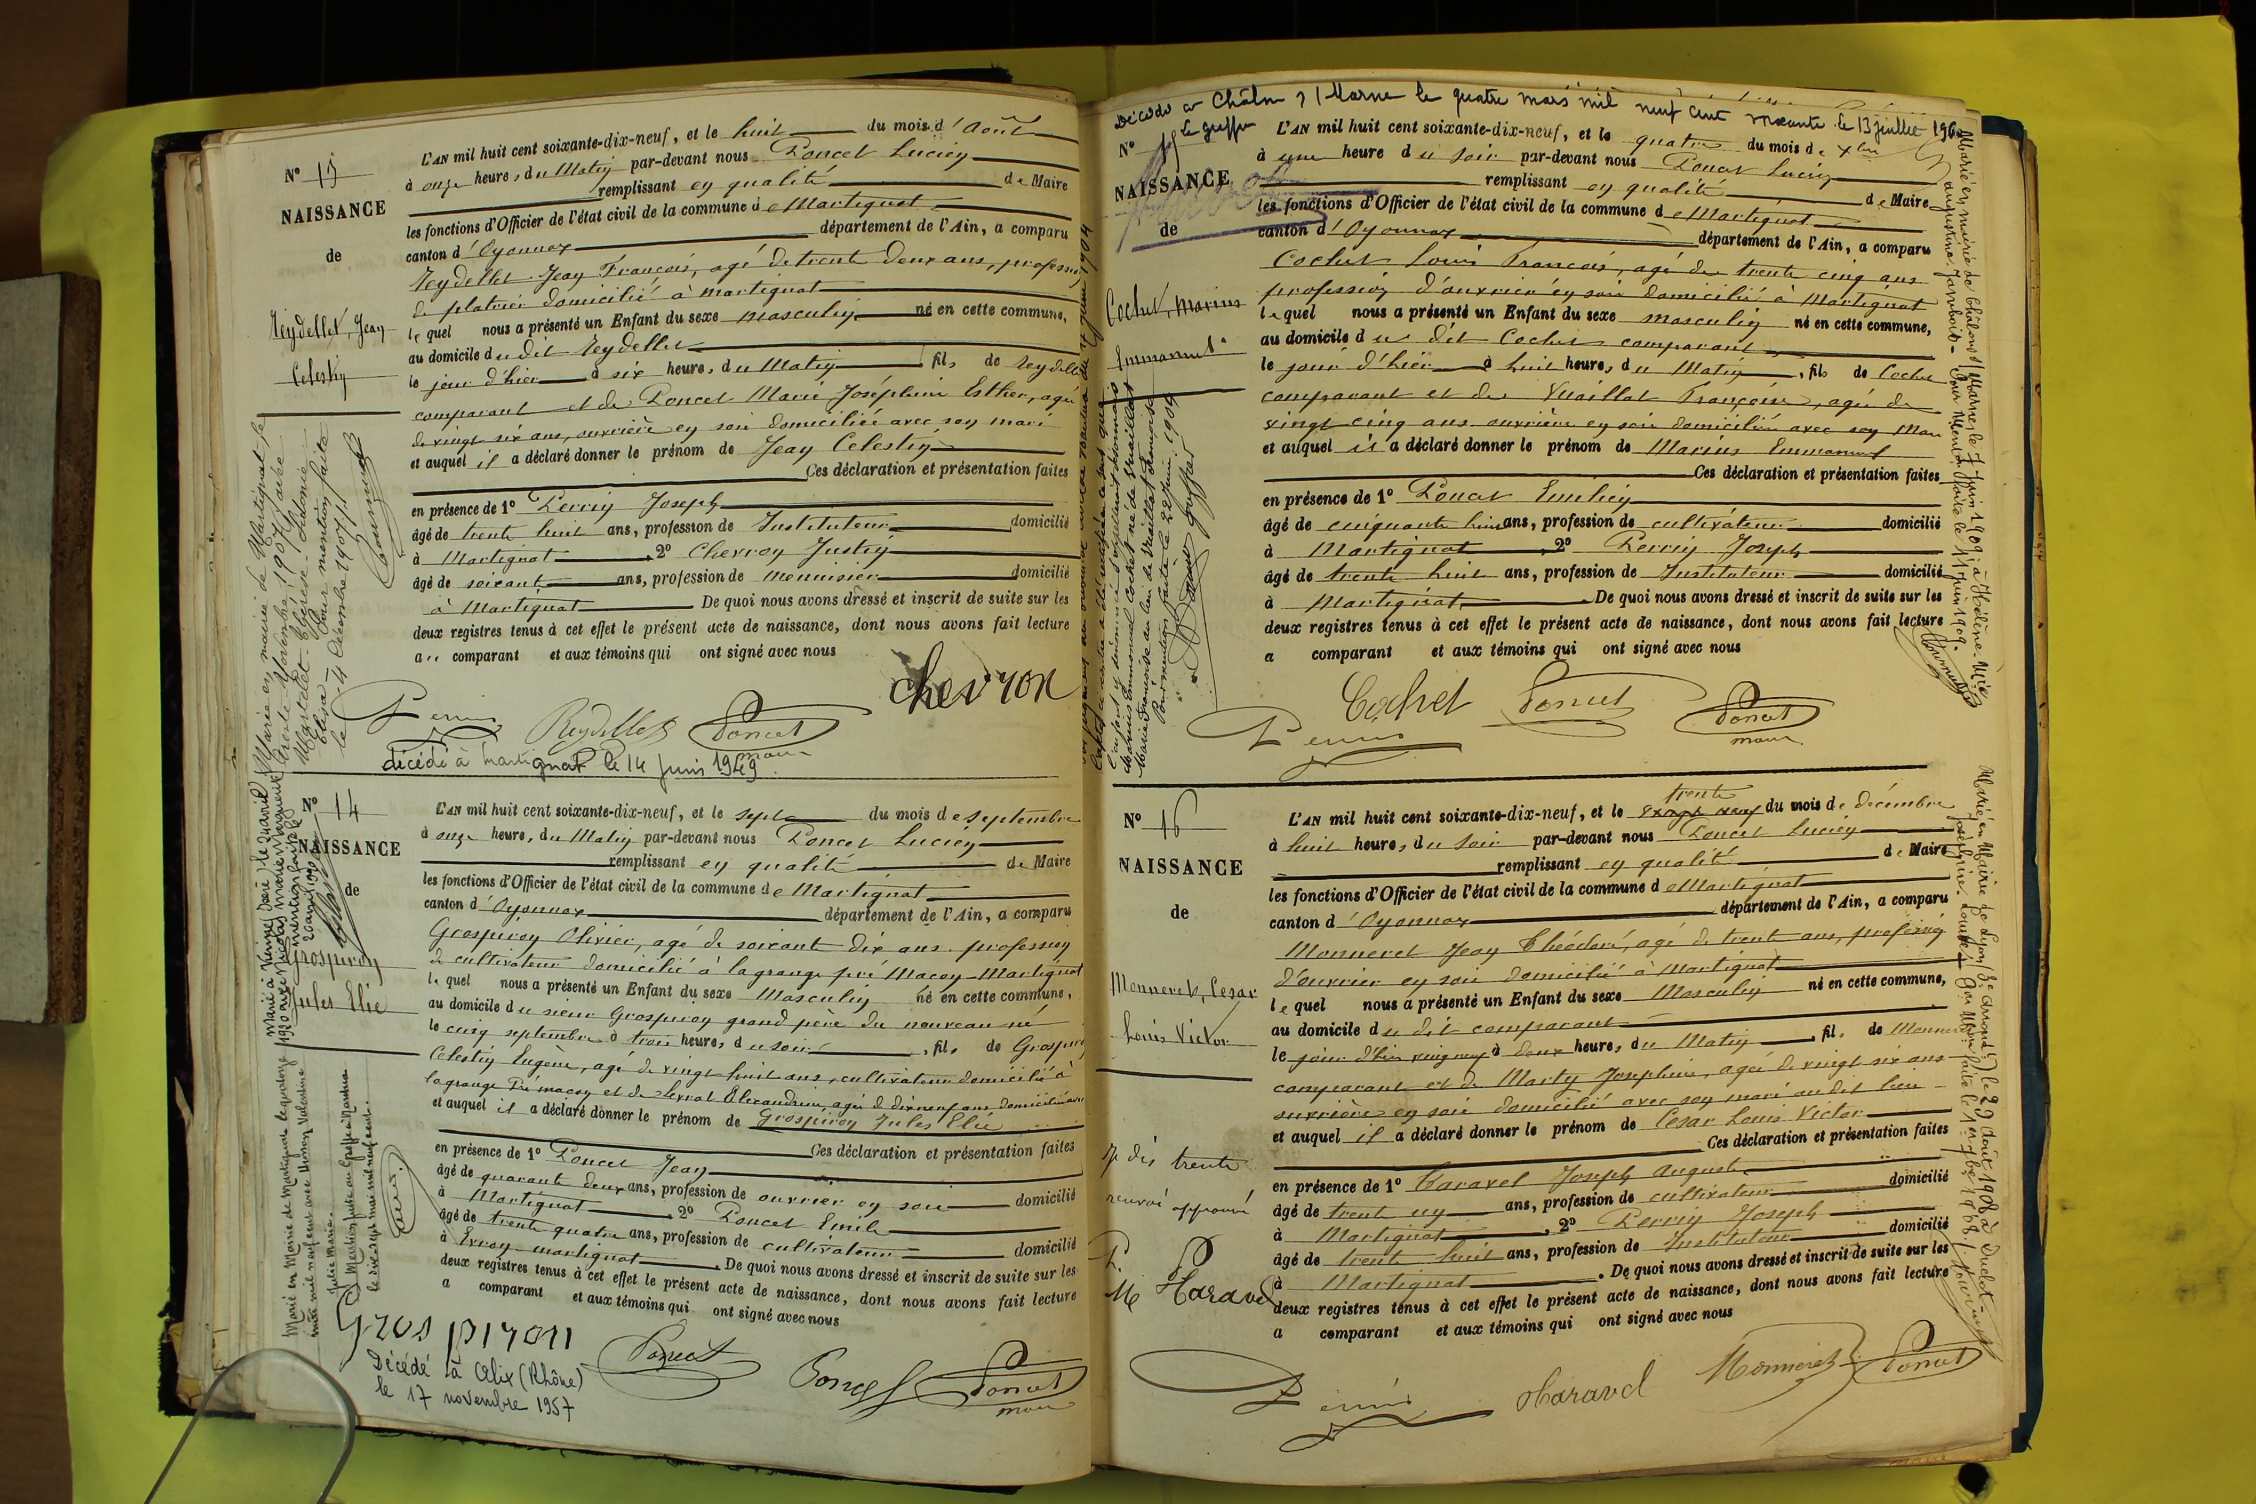 N° 13
NAISSANCE
de
Reydellet, Jean
Celestin
L'AN mil huit cent soixante-dix-neuf, et le huit du mois d'Août
à onze heures du Matin par-devant nous Poncet Lucien
remplissant en qualité de Maire
les fonctions d'Officier de l'état civil de la commune de Martignat
canton d'Oyonnax département de l'Ain, a comparu
Reydellet Jean François, agé de trente deux ans, profession
de platrier domicilié à Martignat
lequel nous a présenté un Enfant du sexe masculin né en cette commune,
au domicile du dit Reydellet
le jour d'hier à six heures du Matin, fils de Reydellet
comparant et de Poncet Marie Joséphine Esther, agée
de vingt six ans, ouvrière en soie domiciliée avec son mari
et auquel il a déclaré donner le prénom de Jean Celestin
Ces déclaration et présentation faites
en présence de 1° Perrin Joseph
âgé de trente huit ans, profession de Instituteur domicilié
à Martignat, 2° Chevron Justin
âgé de soixante ans, profession de Menuisier domicilié
à Martignat De quoi nous avons dressé et inscrit de suite sur les
deux registres tenus à cet effet le présent acte de naissance, dont nous avons fait lecture
au comparant et aux témoins qui ont signé avec nous
chevron
Perrin Reydellet Poncet
maire
décédé à Martignat le 14 Juin 1949
Marié en mairie de Martignat le
trente Novembre 1907, avec
Martelet Thérèse Sidonie
Elisa - Pour mention faite
le 4 décembre 1907
N° 14
NAISSANCE
de
Grospiron
Jules Elie
L'AN mil huit cent soixante-dix-neuf, et le sept du mois de septembre
à onze heures du Matin par-devant nous Poncet Lucien
remplissant en qualité de Maire
les fonctions d'Officier de l'état civil de la commune de Martignat
canton d'Oyonnax département de l'Ain, a comparu
Grospiron Olivier, agé de soixant dix ans profession
de cultivateur domicilié à lagrange pré Macon Martignat
lequel nous a présenté un Enfant du sexe Masculin né en cette commune,
au domicile du sieur Grospiron grand père du nouveau né
le cinq septembre à trois heures du soir, fils de Grospiron
Celestin Eugène, agé de vingt huit ans, cultivateur domicilié à
lagrange Pré macon et de Alexandrine agée de dixneuf ans domiciliée
et auquel il a déclaré donner le prénom de Grospiron Jules Elie
Ces déclaration et présentation faites
en présence de 1° Poncet Jean
âgé de quarante deux ans, profession de ouvrier en soie domicilié
à Martignat, 2° Poncet Emile
âgé de trente quatre ans, profession de cultivateur domicilié
à Evron martignat. De quoi nous avons dressé et inscrit de suite sur les
deux registres tenus à cet effet le présent acte de naissance, dont nous avons fait lecture
a comparant et aux témoins qui ont signé avec nous
Grospiron
Poncet Poncet Poncet
maire
Décédé à Alix (Rhône)
le 17 novembre 1957
Marié en Mairie de Martignat le quatorze
mai mil neuf cent avec Humon Valentine
Julie Marie.
Mention faite au Greffe à Nantua
le dix sept mai mil neuf cent.
Décédé à Châlon s/Marne le quatre mars mil neuf cent soixante le 13 juillet 1960
le greffier
N° 15
NAISSANCE
de
Cochet, Marius
Emmanuel
L'AN mil huit cent soixante-dix-neuf, et le quatre du mois de Xbre
à une heure du soir par-devant nous Poncet Lucien
remplissant en qualité de Maire
les fonctions d'Officier de l'état civil de la commune de Martignat
canton d'Oyonnax département de l'Ain, a comparu
Cochet Louis François, agé de trente cinq ans
profession d'ouvrier en soie domicilié à Martignat
lequel nous a présenté un Enfant du sexe masculin né en cette commune,
au domicile du dit Cochet comparant
le jour d'hier à huit heures du Matin, fils de Cochet
comparant et de Vuaillat Françoise, agée de
vingt cinq ans ouvrière en soie domiciliée avec son Mari
et auquel il a déclaré donner le prénom de Marius Emmanuel
Ces déclaration et présentation faites
en présence de 1° Poncet Emilien
âgé de cinquante huit ans, profession de cultivateur domicilié
à Martignat, 2° Perrin Joseph
âgé de trente huit ans, profession de Instituteur domicilié
à Martignat. De quoi nous avons dressé et inscrit de suite sur les
deux registres tenus à cet effet le présent acte de naissance, dont nous avons fait lecture
a comparant et aux témoins qui ont signé avec nous
Cochet Poncet Poncet
Perrin maire
Marié en mairie de Châlons s/ Marne, le 7 Juin 1909, à Hélène Mie
Augustine Janvoid - Pour Mention faite le 11 Juin 1909.
N° 16
NAISSANCE
de
Monneret, Cesar
Louis Victor
trente
L'AN mil huit cent soixante-dix-neuf, et le vingt neuf du mois de décembre
à huit heures du soir par-devant nous Poncet Lucien
remplissant en qualité de Maire
les fonctions d'Officier de l'état civil de la commune de Martignat
canton d'Oyonnax département de l'Ain, a comparu
Monneret Jean Théodore, agé de trente ans, profession
d'ouvrier en soie domicilié à Martignat
lequel nous a présenté un Enfant du sexe Masculin né en cette commune,
au domicile du dit comparant
le jour d'hier vingt neuf à deux heures du Matin, fils de Monneret
comparant et de Marty Josephine, agée de vingt six ans
ouvrière en soie domicilié avec son mari au dit lieu
et auquel il a déclaré donner le prénom de Cesar Louis Victor
Ces déclaration et présentation faites
en présence de 1° Caravel Joseph Auguste
âgé de trente un ans, profession de cultivateur domicilié
à Martignat, 2° Perrin Joseph
âgé de trente huit ans, profession de Instituteur domicilié
à Martignat. De quoi nous avons dressé et inscrit de suite sur les
deux registres tenus à cet effet le présent acte de naissance, dont nous avons fait lecture
a comparant et aux témoins qui ont signé avec nous
dis trente
renvoi approuvé
P.
M Haravel
Perrin Haravel Monneret Poncet
Marié en Mairie de Lyon (3e Arrond.t) le 29 Août 1908 à Duclot